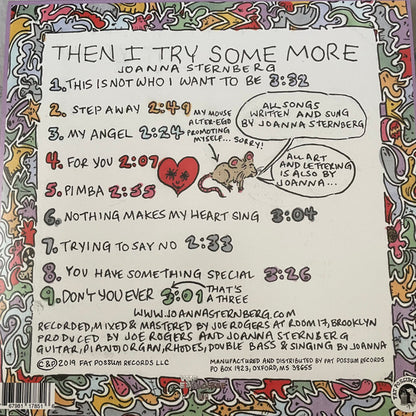 THEN I TRY SOME MORE
JOANNA STERNBERG
1. THIS IS NOT WHO I WANT TO BE 3:32
2. STEP AWAY 2:49
3. MY ANGEL 2:24
4. FOR YOU 2:07
5. PIMBA 2:35
6. NOTHING MAKES MY HEART SING 3:04
7. TRYING TO SAY NO 2:33
8. YOU HAVE SOMETHING SPECIAL 3:26
9. DON'T YOU EVER 3:01
THAT'S
A THREE
MY MOUSE
ALTER-EGO
PROMOTING
MYSELF... SORRY!
ALL SONGS
WRITTEN AND SUNG
BY JOANNA STERNBERG
ALL ART
AND LETTERING
IS ALSO BY
JOANNA...
WWW.JOANNASTERNBERG.COM
RECORDED, MIXED & MASTERED BY JOE ROGERS AT ROOM 17, BROOKLYN
PRODUCED BY JOE ROGERS AND JOANNA STERNBERG
GUITAR, PIANO, ORGAN, RHODES, DOUBLE BASS & SINGING BY JOANNA
©&℗ 2019 FAT POSSUM RECORDS LLC
MANUFACTURED AND DISTRIBUTED BY FAT POSSUM RECORDS
PO BOX 1923, OXFORD, MS 38655